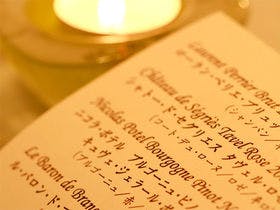 Laurent Perrier Br
ローラン・ペリエ・ブリュッ
(シャンパン
Château de Ségriès Tavel Rose 20
シャトー・セグリエス タヴェル
(コート・デュ・ローヌ/ロゼ
Nicolas Potel Bourgogne Pinot N
ニコラ・ポテル ブルゴーニュ・ピ
キュヴェ・ジェラール・ポ
(ブルゴーニュ/
Le Baron de Bran
ル・バロン・ド・